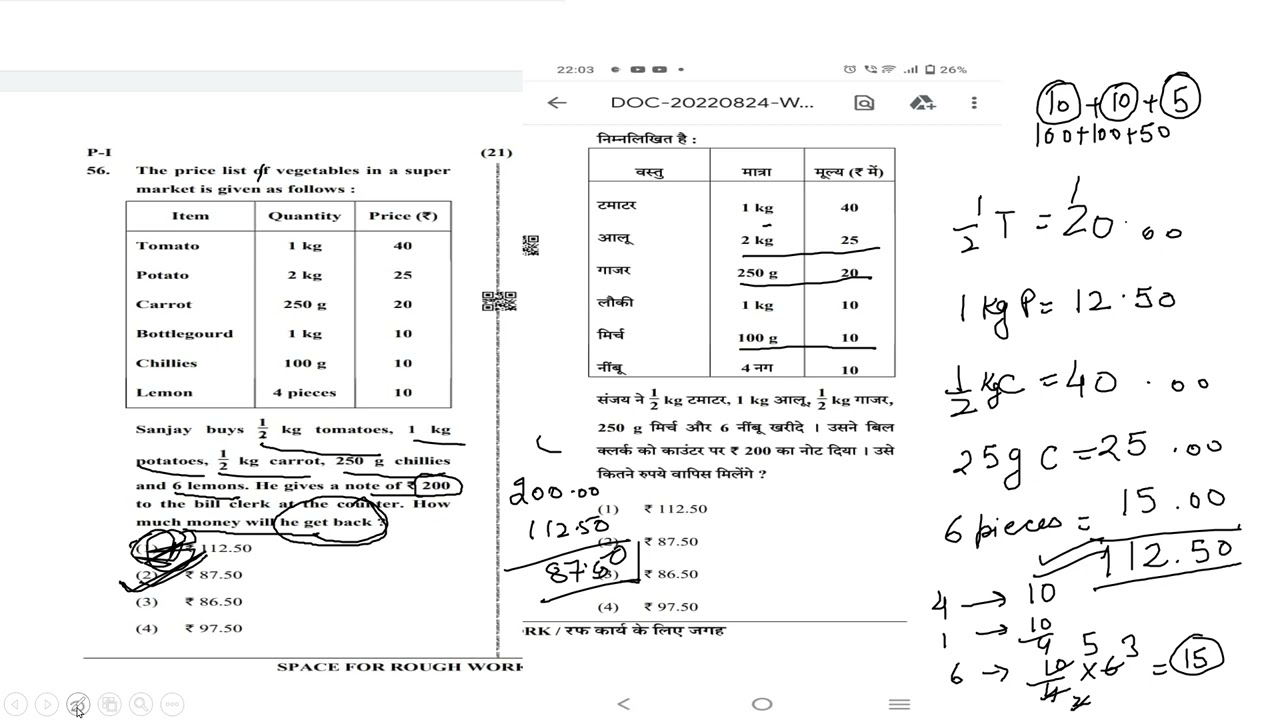 P-I (21)
56. The price list of vegetables in a super
market is given as follows :
Item Quantity Price (₹)
Tomato 1 kg 40
Potato 2 kg 25
Carrot 250 g 20
Bottlegourd 1 kg 10
Chillies 100 g 10
Lemon 4 pieces 10
Sanjay buys 1/2 kg tomatoes, 1 kg
potatoes, 1/2 kg carrot, 250 g chillies
and 6 lemons. He gives a note of ₹ 200
to the bill clerk at the counter. How
much money will he get back ?
(1) ₹ 112.50
(2) ₹ 87.50
(3) ₹ 86.50
(4) ₹ 97.50
SPACE FOR ROUGH WORK
22:03 26%
DOC-20220824-W...
निम्नलिखित है :
वस्तु मात्रा मूल्य (₹ में)
टमाटर 1 kg 40
आलू 2 kg 25
गाजर 250 g 20
लौकी 1 kg 10
मिर्च 100 g 10
नींबू 4 नग 10
संजय ने 1/2 kg टमाटर, 1 kg आलू, 1/2 kg गाजर,
250 g मिर्च और 6 नींबू खरीदे । उसने बिल
क्लर्क को काउंटर पर ₹ 200 का नोट दिया । उसे
कितने रुपये वापिस मिलेंगे ?
(1) ₹ 112.50
(2) ₹ 87.50
(3) ₹ 86.50
(4) ₹ 97.50
RK / रफ कार्य के लिए जगह
200.00
112.50
87.50
10 + 10 + 5
100+100+50
1/2 T = 20.00
1 kg P = 12.50
1/2 kg C = 40.00
25g C = 25.00
6 pieces = 15.00
112.50
4 → 10
1 → 10/4
6 → 10/4 × 6 = 15
5 3
2